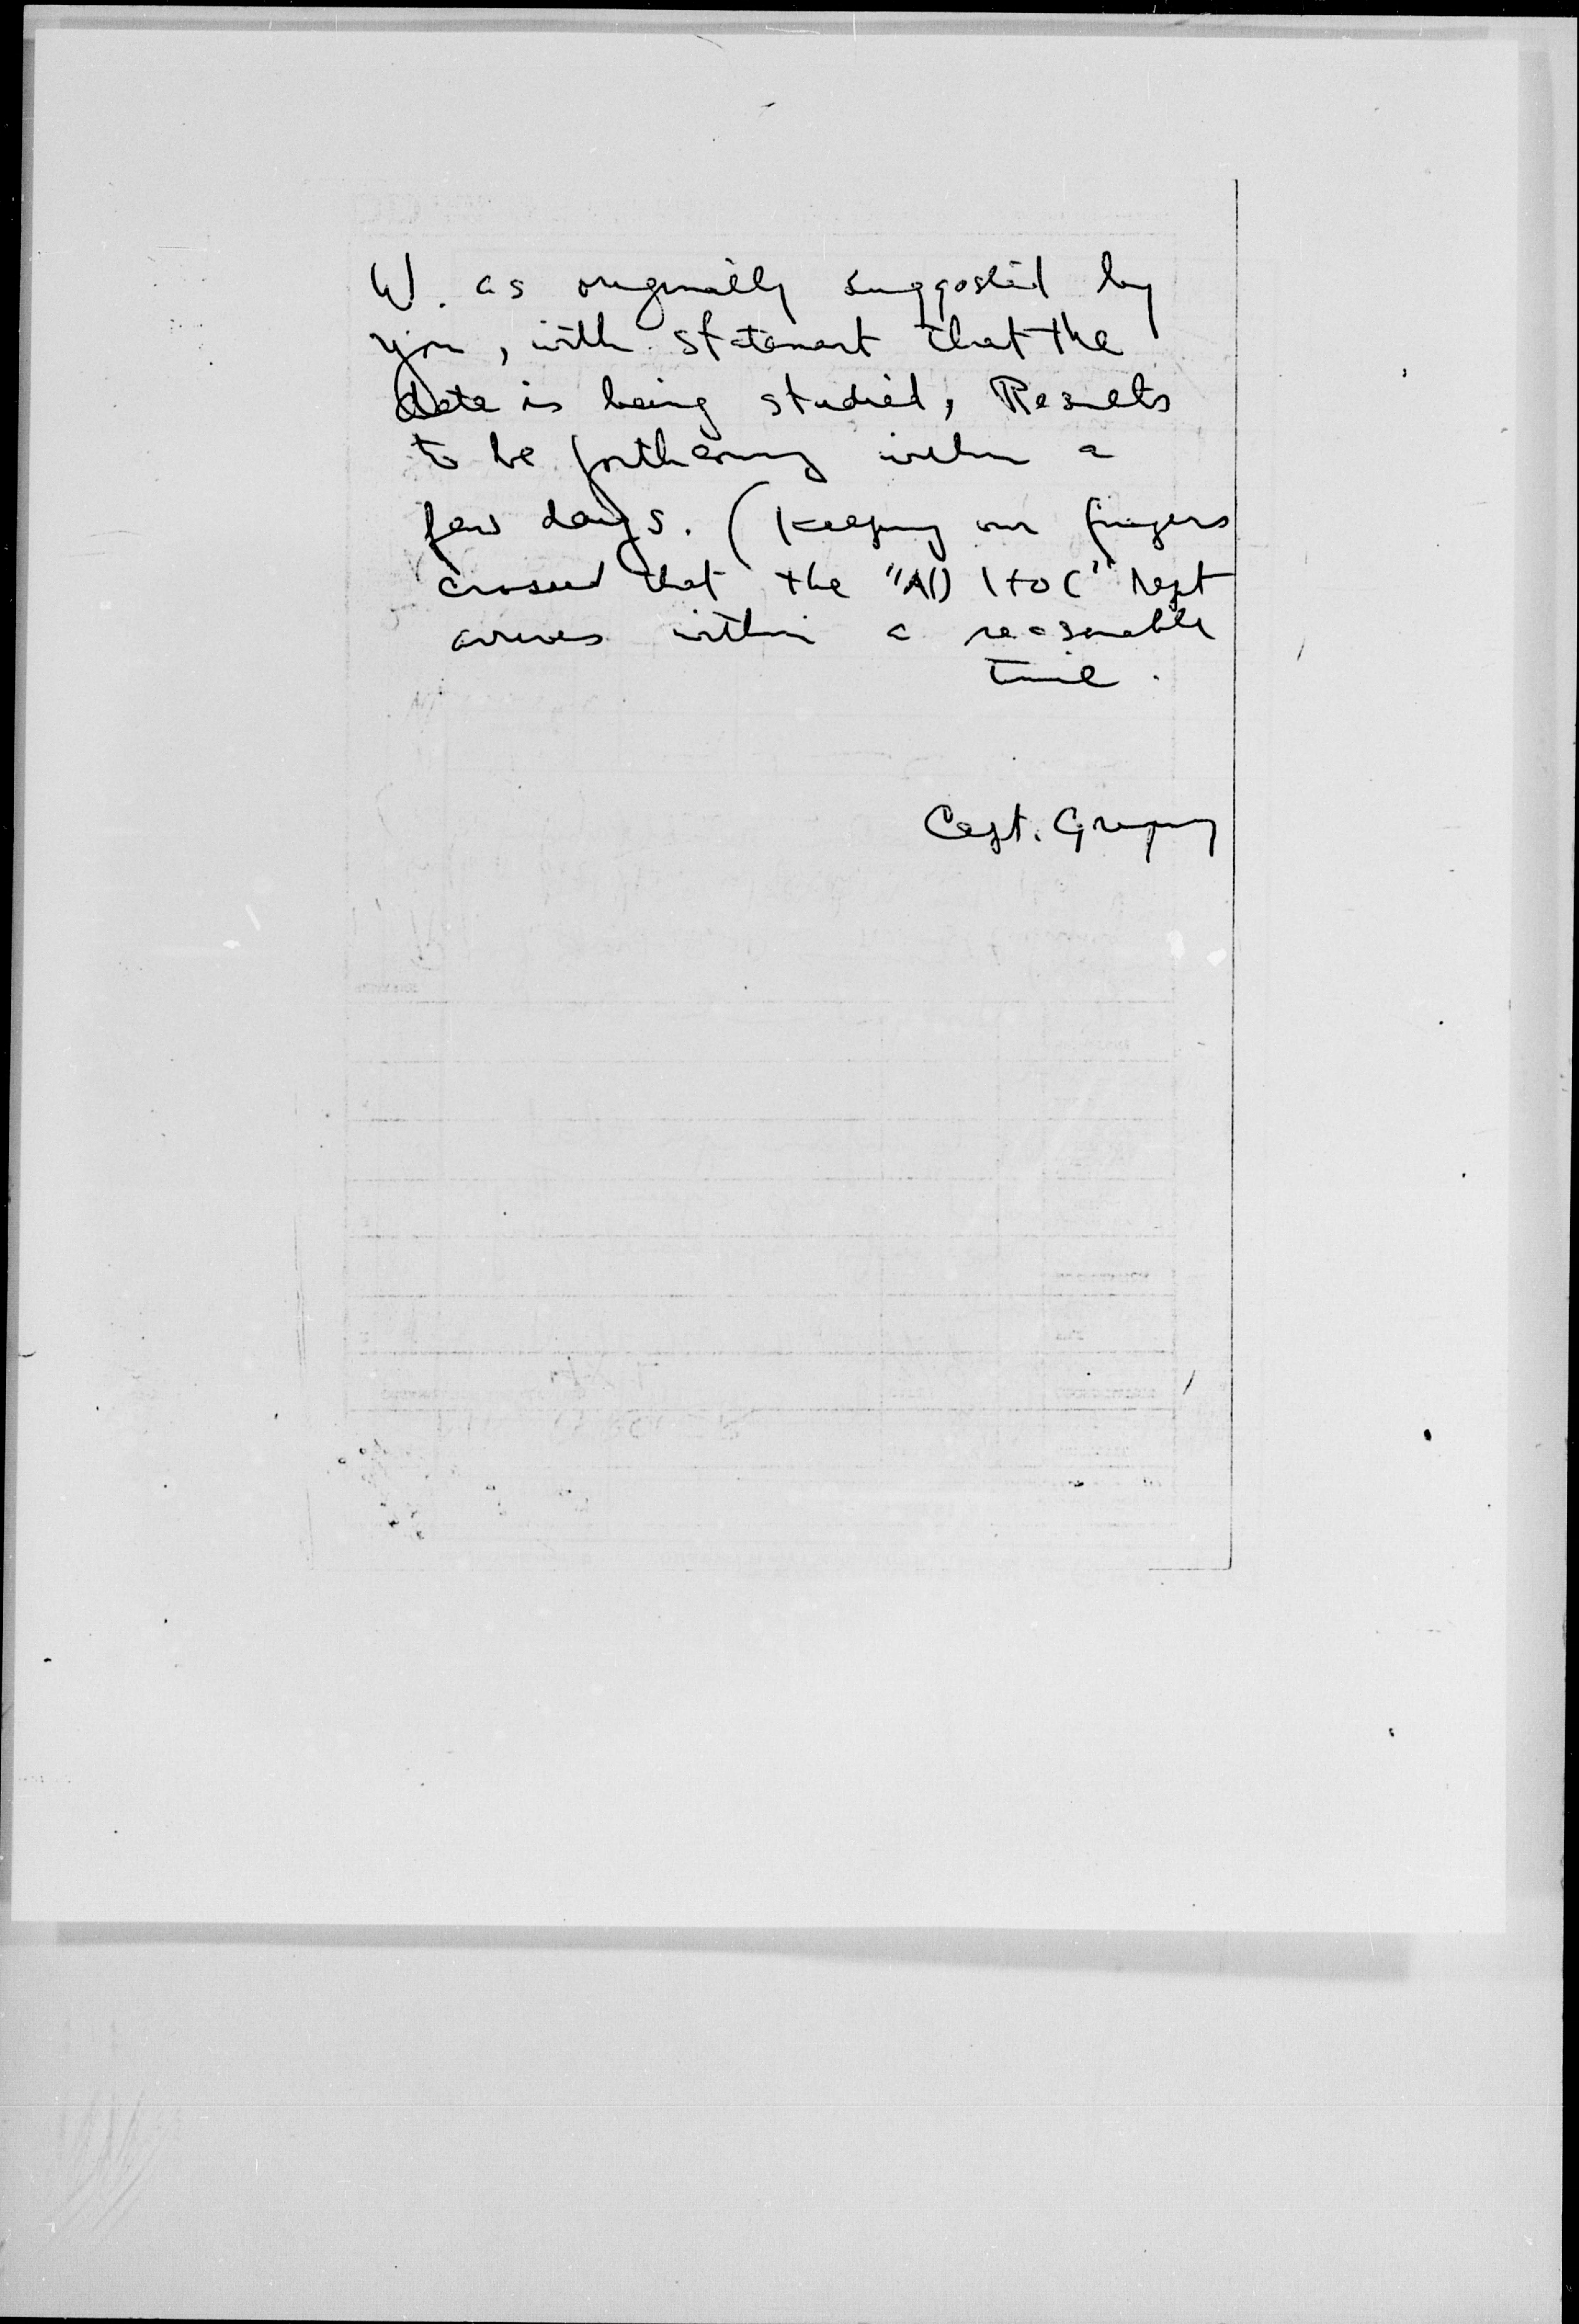 W. as originally suggested by
you, with statement that the
data is being studied, Results
to be forthcoming within a
few days. (Keeping our fingers
crossed that the "AD 1 to C" rept
arrives within a reasonable
time.
Capt. Gregory